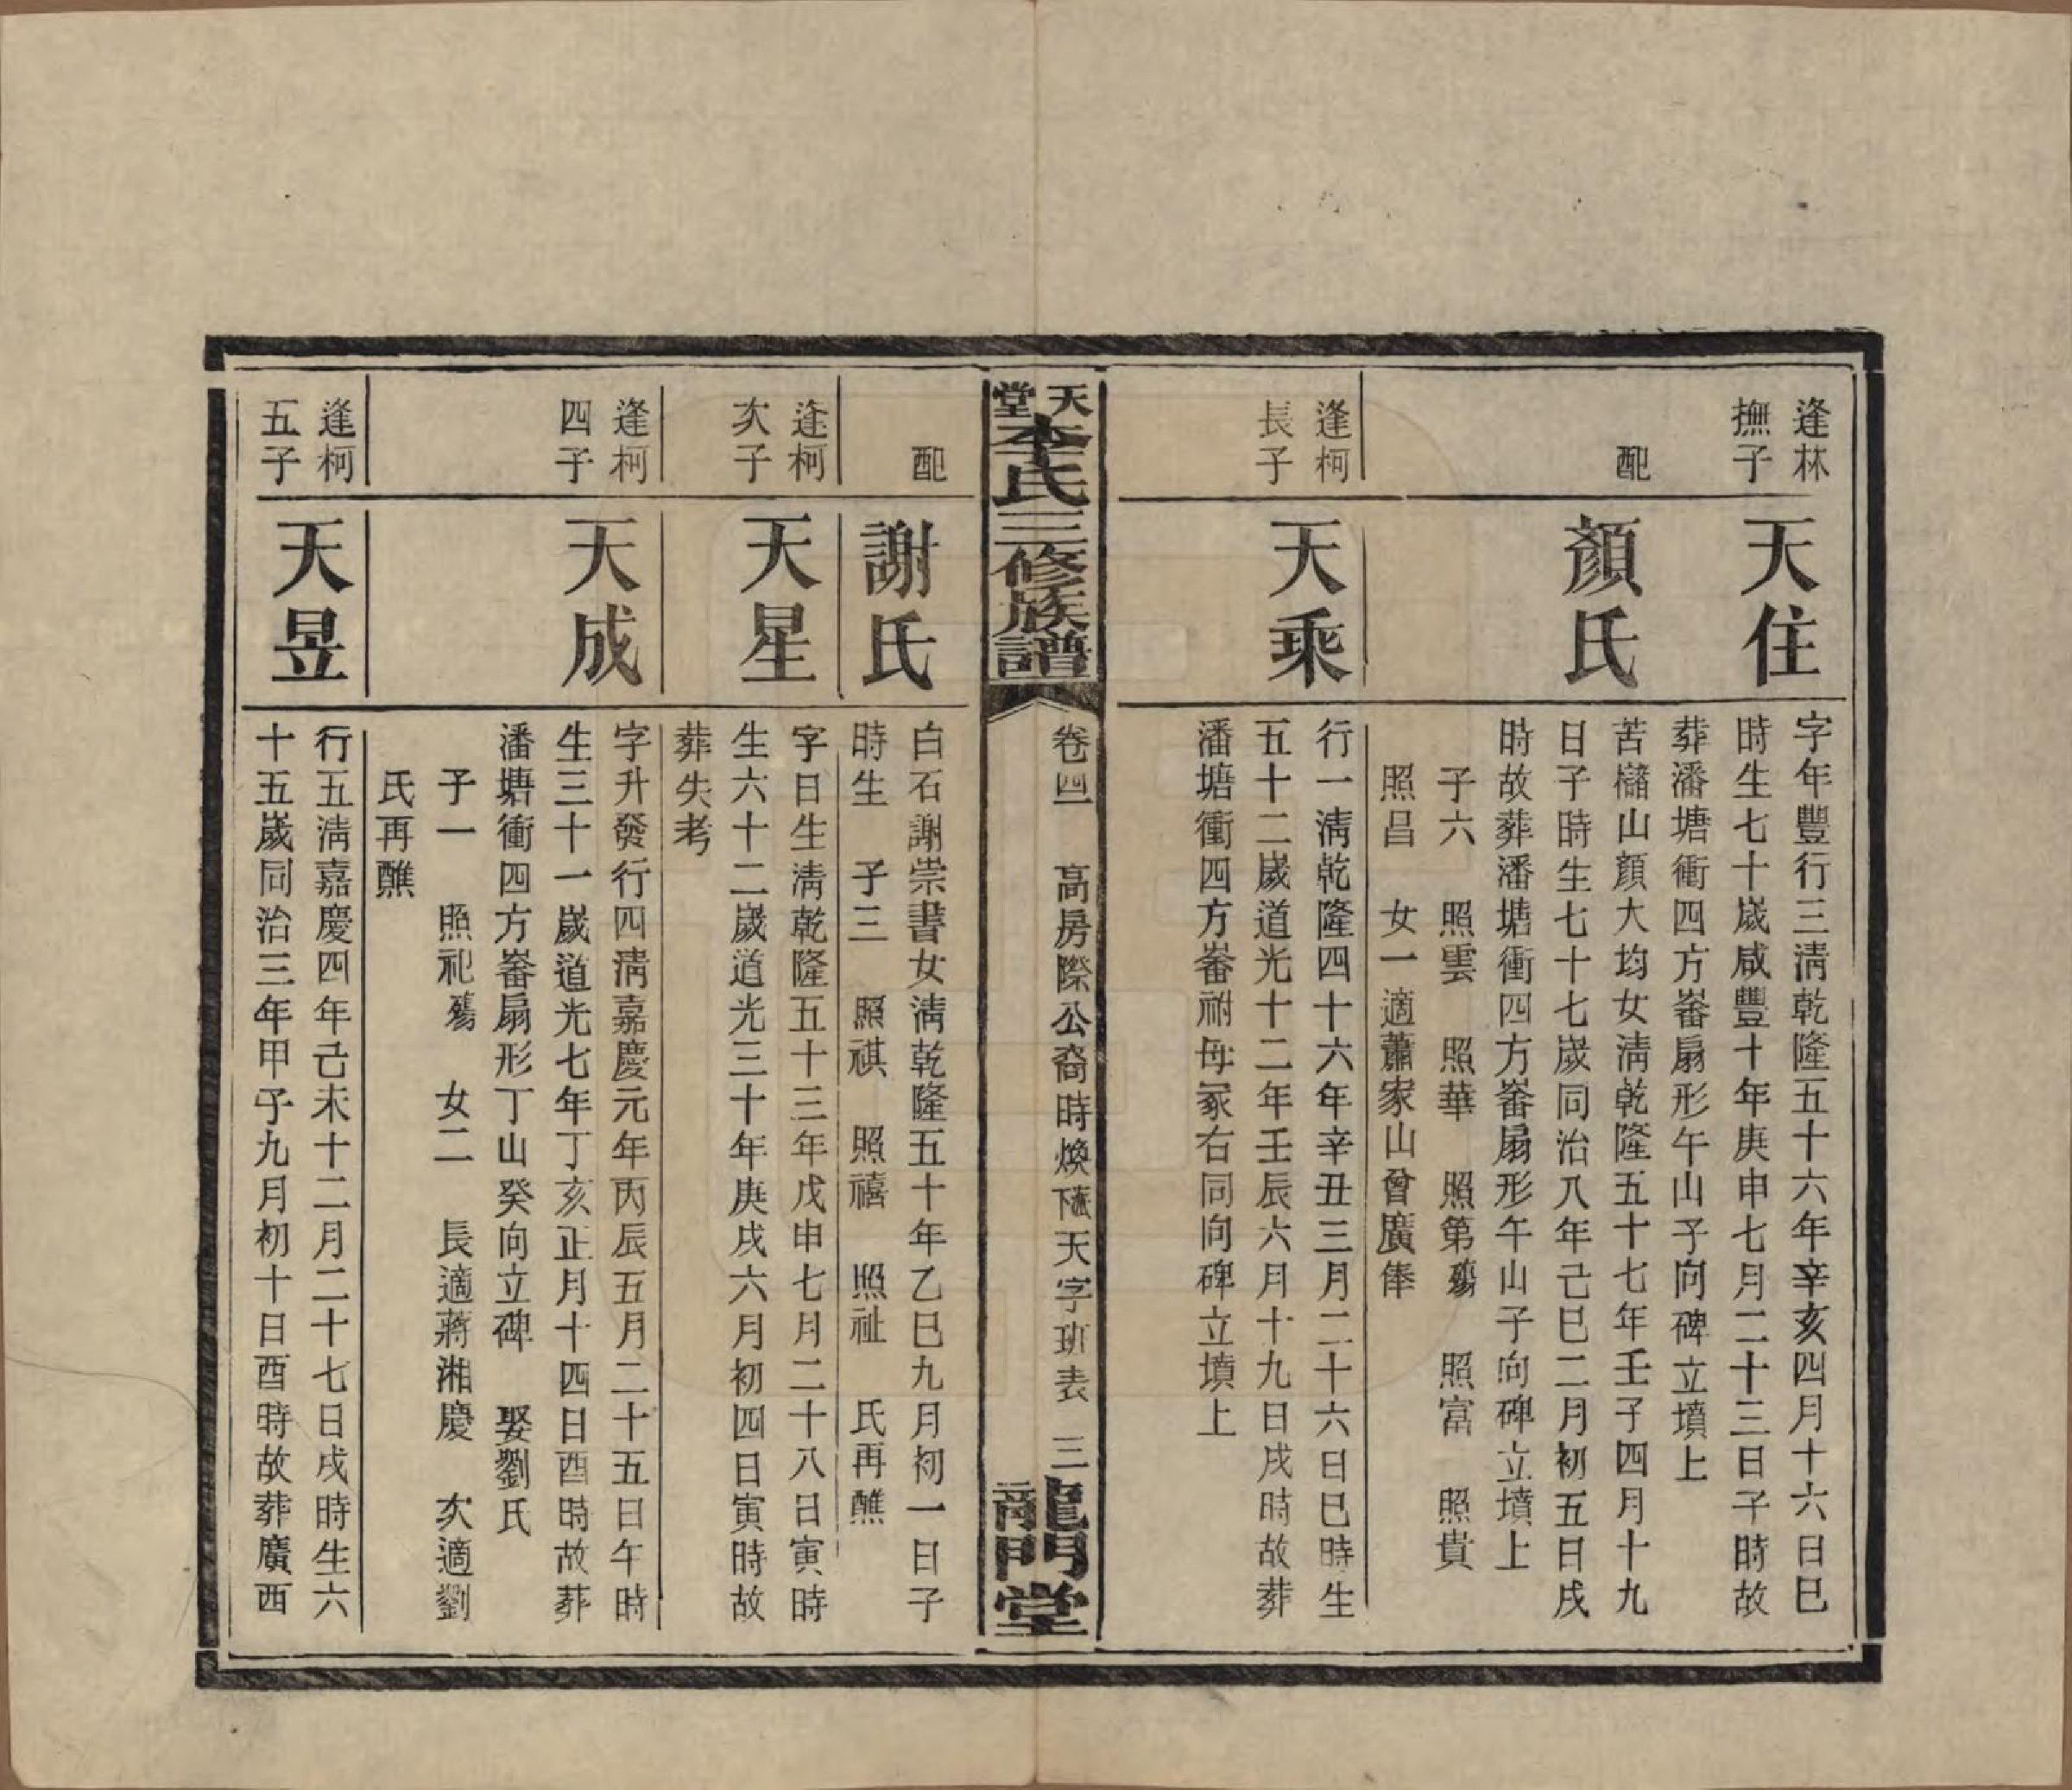 逢林
撫子
天住
字年豐行三淸乾隆五十六年辛亥四月十六日巳
時生七十歲咸豐十年庚申七月二十三日子時故
葬潘塘衝四方崙扇形午山子向碑立墳上
配
顏氏
苦櫧山顏大均女淸乾隆五十七年壬子四月十九
日子時生七十七歲同治八年己巳二月初五日戌
時故葬潘塘衝四方崙扇形午山子向碑立墳上
子六 照雲 照華 照第殤 照富 照貴
照昌 女一適蕭家山曾廣俸
逢柯
長子
天乘
行一淸乾隆四十六年辛丑三月二十六日巳時生
五十二歲道光十二年壬辰六月十九日戌時故葬
潘塘衝四方崙祔母冢右同向碑立墳上
天堂李氏三修族譜
卷四 高房際公裔時煥下天字班表 三
龍門堂
配
謝氏
白石謝崇書女淸乾隆五十年乙巳九月初一日子
時生 子三 照祺 照禧 照祉 氏再醮
逢柯
次子
天星
字日生淸乾隆五十三年戊申七月二十八日寅時
生六十二歲道光三十年庚戌六月初四日寅時故
葬失考
逢柯
四子
天成
字升發行四淸嘉慶元年丙辰五月二十五日午時
生三十一歲道光七年丁亥正月十四日酉時故葬
潘塘衝四方崙扇形丁山癸向立碑 娶劉氏
子一 照祀殤 女二 長適蔣湘慶 次適劉
氏再醮
逢柯
五子
天昱
行五淸嘉慶四年己未十二月二十七日戌時生六
十五歲同治三年甲子九月初十日酉時故葬廣西